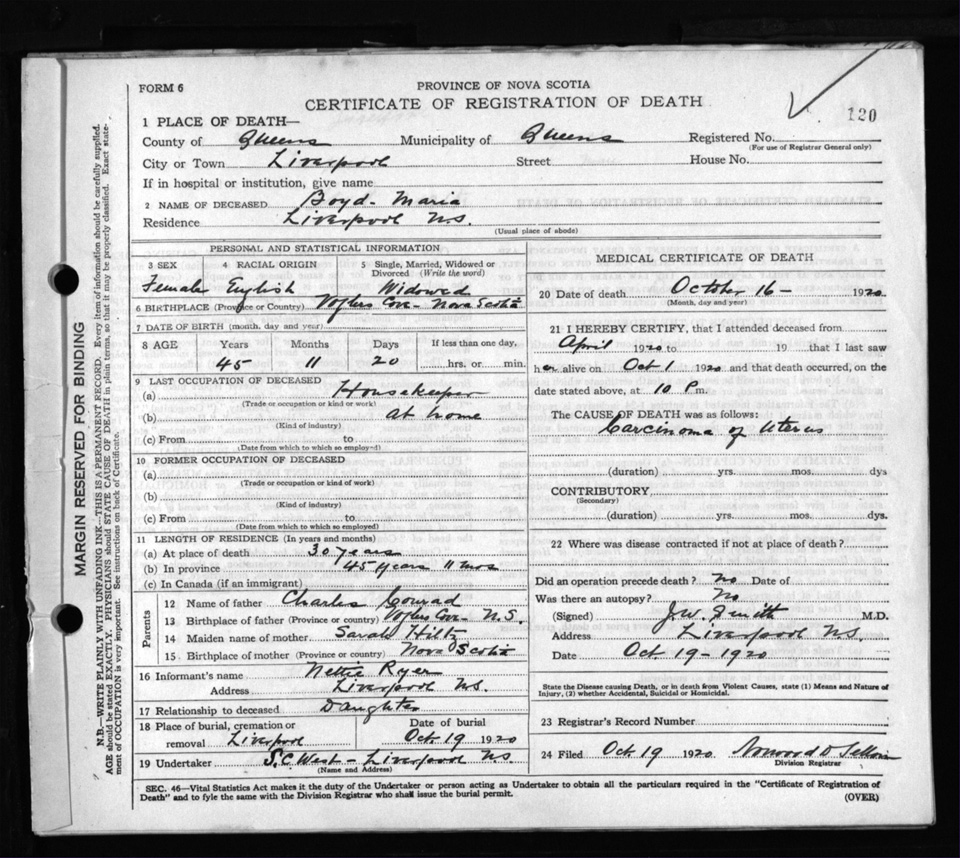 FORM 6
PROVINCE OF NOVA SCOTIA
CERTIFICATE OF REGISTRATION OF DEATH
120
1 PLACE OF DEATH—
County of Queens Municipality of Queens Registered No.
(For use of Registrar General only)
City or Town Liverpool Street House No.
If in hospital or institution, give name
2 NAME OF DECEASED Boyd- Maria
Residence Liverpool N.S.
(Usual place of abode)
PERSONAL AND STATISTICAL INFORMATION
3 SEX 4 RACIAL ORIGIN 5 Single, Married, Widowed or Divorced (Write the word)
Female English Widowed
6 BIRTHPLACE (Province or Country) Voglers Cove- Nova Scotia
7 DATE OF BIRTH (month, day and year)
8 AGE Years Months Days If less than one day,
45 11 20 hrs. or min.
9 LAST OCCUPATION OF DECEASED
(a) Housekeeper
(Trade or occupation or kind or work)
(b) at home
(Kind of industry)
(c) From to
(Date from which to which so employed)
10 FORMER OCCUPATION OF DECEASED
(a)
(Trade or occupation or kind of work)
(b)
(Kind of industry)
(c) From to
(Date from which to which so employed)
11 LENGTH OF RESIDENCE (In years and months)
(a) At place of death 30 years
(b) In province 45 years 11 mos
(c) In Canada (if an immigrant)
Parents
12 Name of father Charles Conrad
13 Birthplace of father (Province or country) Voglers Cove- N.S.
14 Maiden name of mother Sarah Hiltz
15 Birthplace of mother (Province or country) Nova Scotia
16 Informant's name Nettie
Address Liverpool N.S.
17 Relationship to deceased Daughter
18 Place of burial, cremation or removal Liverpool Date of burial Oct. 19 1920
19 Undertaker S.C West- Liverpool N.S
(Name and Address)
MEDICAL CERTIFICATE OF DEATH
20 Date of death October 16- 1920
(Month, day and year)
21 I HEREBY CERTIFY, that I attended deceased from
April 1920 to 19 that I last saw
her alive on Oct 1 1920 and that death occurred, on the
date stated above, at 10 P.m.
The CAUSE OF DEATH was as follows:
Carcinoma of Uterus
(duration) yrs. mos. dys
CONTRIBUTORY
(Secondary)
(duration) yrs. mos. dys.
22 Where was disease contracted if not at place of death?
Did an operation precede death? No Date of
Was there an autopsy? No
(Signed) J.W. Smith M.D.
Address Liverpool N.S.
Date Oct. 19- 1920
State the Disease causing Death, or in death from Violent Causes, state (1) Means and Nature of
Injury, (2) whether Accidental, Suicidal or Homicidal.
23 Registrar's Record Number
24 Filed Oct 19 1920
Division Registrar
SEC. 46—Vital Statistics Act makes it the duty of the Undertaker or person acting as Undertaker to obtain all the particulars required in the "Certificate of Registration of
Death" and to fyle the same with the Division Registrar who shall issue the burial permit.
(OVER)
MARGIN RESERVED FOR BINDING
N.B.—WRITE PLAINLY WITH UNFADING INK—THIS IS A PERMANENT RECORD. Every item of information should be carefully supplied.
AGE should be stated EXACTLY. PHYSICIANS should STATE CAUSE OF DEATH in plain terms, so that it may be properly classified. Exact state-
ment of OCCUPATION is very important. See instructions on back of Certificate.